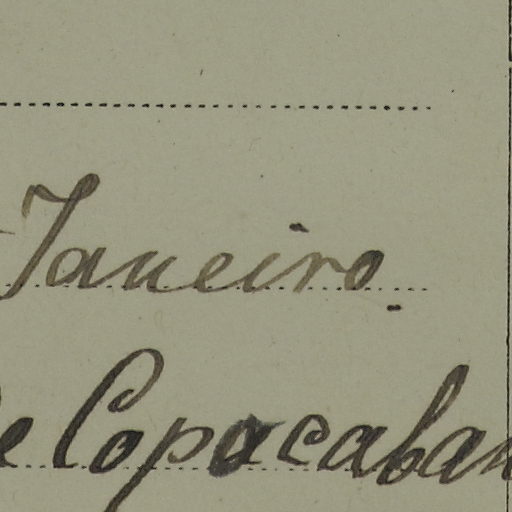 Janeiro.
de Copacaban